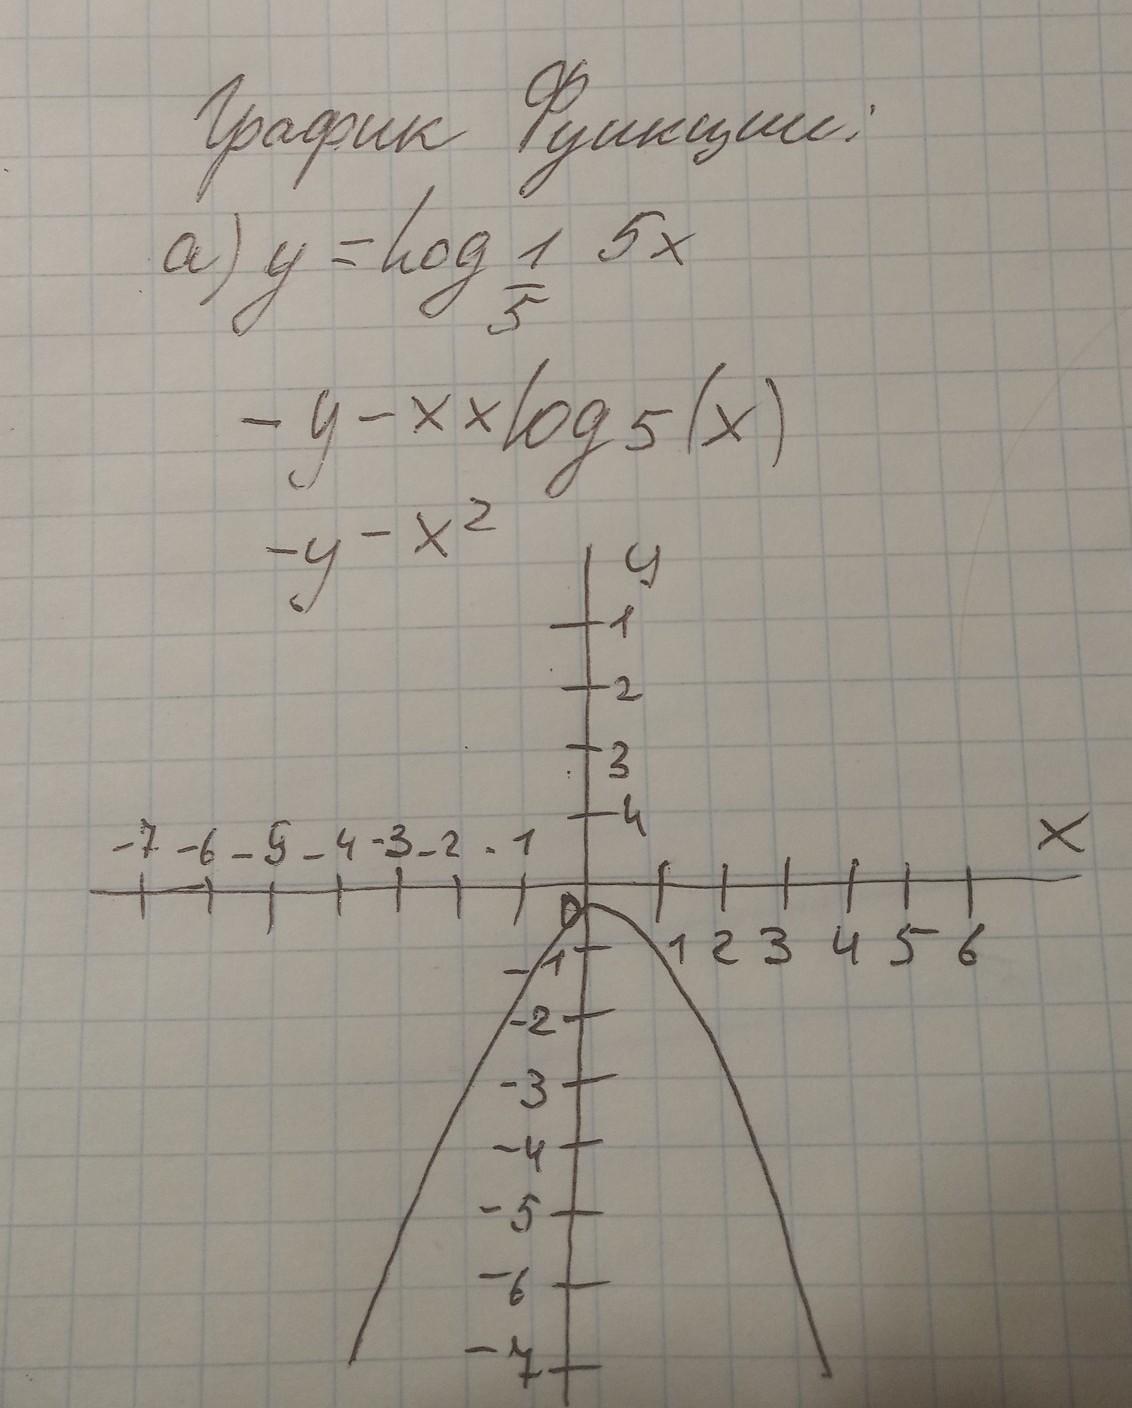 График Функции:
а) y = log 1/5 5x
- y - x x log 5 (x)
- y - x²
y
1
2
3
4
x
-7 -6 -5 -4 -3 -2 -1
0
1 2 3 4 5 6
-1
-2
-3
-4
-5
-6
-7